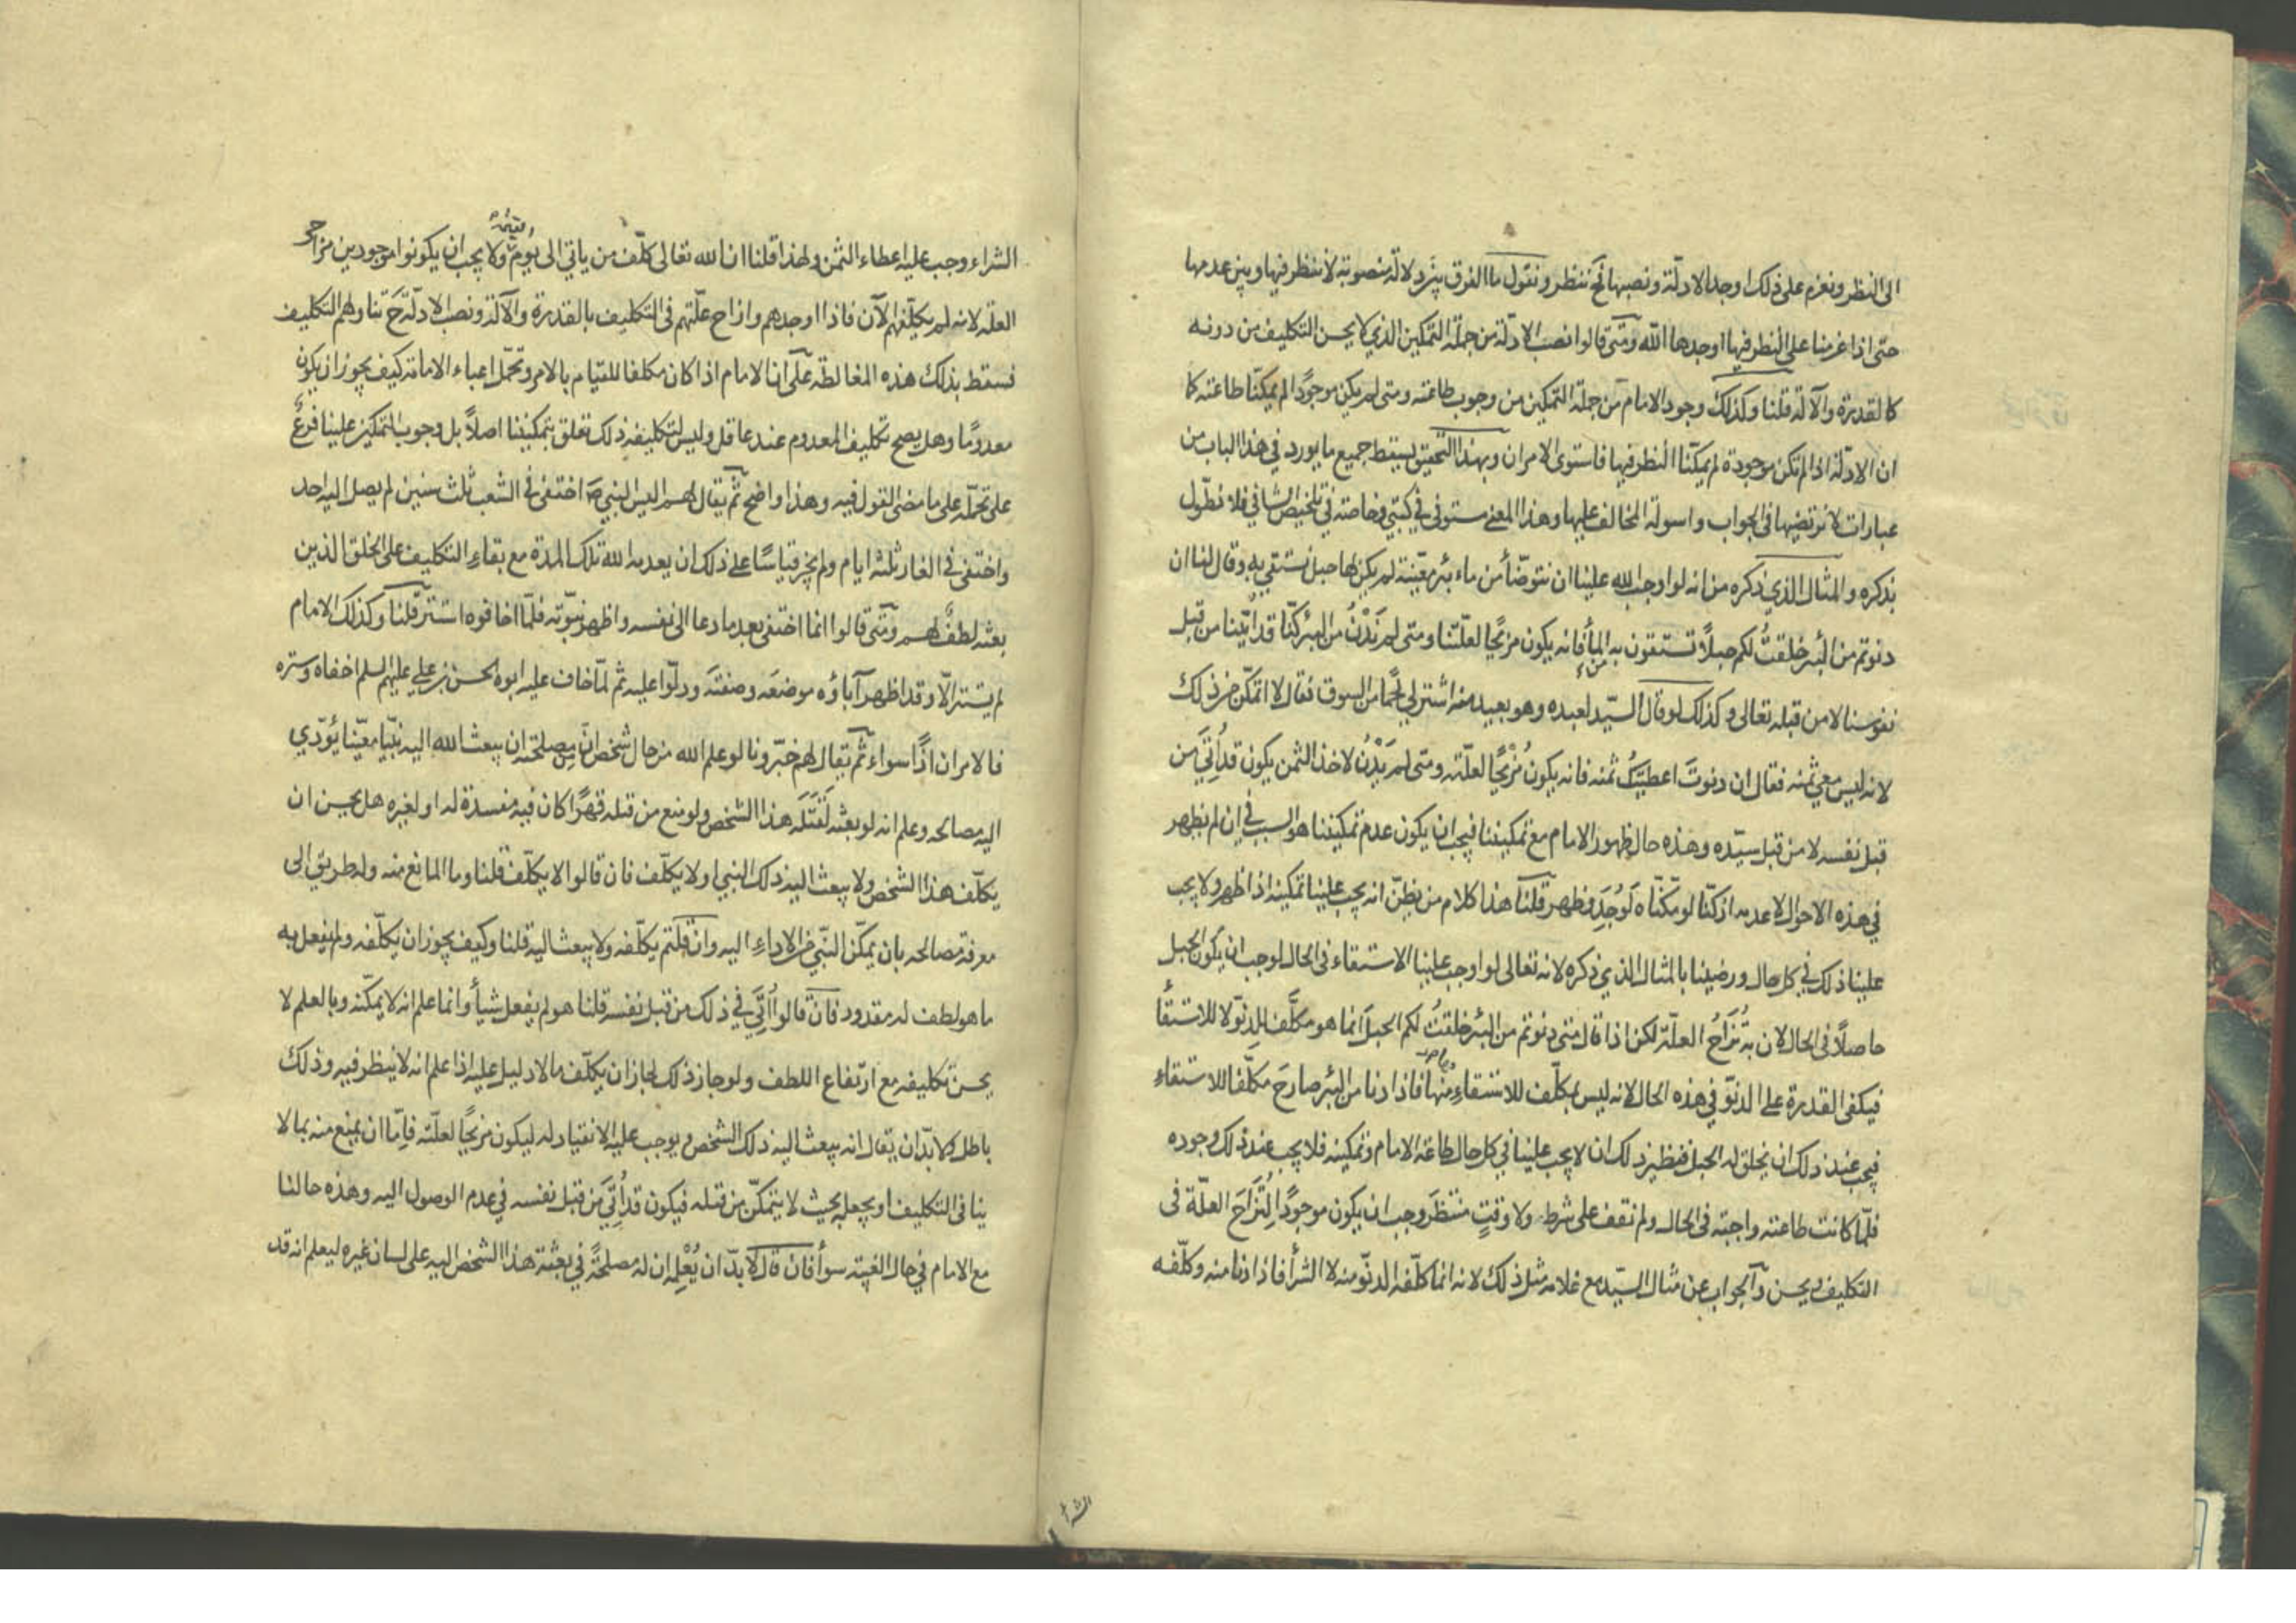 الى النظر ونعزم على ذلك اوجد الادلة ونصبها فحَ ننظر ونقول ما الفرق بين دلالة منصوبة لا ننظر فيها وبين عدمها
حتى اذا عزمنا على النظر فيها اوجدها الله ومتى قالوا نصب الادلة من جملة التمكين الذي لا يحسن التكليف من دونه
كالقدرة والآلة قلنا وكذلك وجود الامام من جملة التمكين من وجوب طاعته ومتى لم يكن موجودًا لم يمكنّا طاعته كما
ان الادلة اذا لم تكن موجودة لم يمكنّا النظر فيها فاستوى الامران وبهذا التحقيق يسقط جميع ما يورد في هذا الباب من
عبارات لا نرتضيها فى الجواب واسولة المخالف عليها وهذا المعنى مستوفى في كتبي وخاصة في تلخيص الشافي فلا نطوّل
بذكره والمثال الذي ذكره من انه لو اوجب الله علينا ان نتوضّأ من ماء بئر معيّنة لم يكن لها حبل نستقي به وقال لنا ان
دنوتم من البئر خلقتُ لكم حبلاً تستقون به من الماء فانه يكون مزيحًا لعلّتنا ومتى لم نَدْنُ من البئر كنّا قد أُتينا من قبل
نفوسنا لا من قبله تعالى وكذلك لو قال السيّد لعبده وهو بعيد منه اشتر لي لحمًا من السوق فقال لا اتمكّن من ذلك
لانه ليس معي ثمنه فقال ان دنوتَ اعطيتُك ثمنه فانه يكون مُزيحًا لعلّته ومتى لم يَدْنُ لاخذ الثمن يكون قد أُتِيَ من
قبل نفسه لا من قبل سيّده وهذه حال ظهور الامام مع تمكيننا فيجب ان يكون عدم تمكيننا هو السبب في ان لم يظهر
في هذه الاحوال لا عدمه اذ كنّا لو مكّنّاه لَوُجِدَ وظهر قلنا هذا كلام من يظنّ انه يجب علينا تمكينه اذا ظهر ولا يجب
علينا ذلك في كل حال ورضينا بالمثال الذي ذكره لانه تعالى لو اوجب علينا الاستقاء فى الحال لوجب ان يكون الحبل
حاصلاً فى الحال لان به تُزَاحُ العلّة لكن اذا قال متى دنوتم من البئر خلقتُ لكم الحبلَ انما هو مكلَّف للدنوّ لا للاستقأ
فيكفى القدرة على الدنوّ في هذه الحال لانه ليس بمكلّف للاستقاء منها فاذا دنا من البئر صار حَ مكلّفا للاستقاء
فيجب عند ذلك ان يخلق له الحبل فنظير ذلك ان لا يجب علينا في كل حال طاعة الامام وتمكينه فلا يجب عند ذلك وجوده
فلمّا كانت طاعته واجبة فى الحال ولم تقف على شرط ولا وقتٍ منتظَر وجب ان يكون موجودًا لِتُزَاحَ العلّة فى
التكليف ويحسن والجواب عن مثال السيّد مع غلامه مثل ذلك لانه انما كلّفه الدنوّ منه لا الشرأ فاذا دنا منه وكلّفه
الشرا
الشراء وجب عليه اعطاء الثمن ولهذا قلنا ان الله تعالى كلّف من ياتي الى يوم القيمة ولا يجب ان يكونوا موجودين مزاحى
العلّة لانه لم يكلّفهم الآن فاذا اوجدهم وازاح علّتهم فى التكليف بالقدرة والآلة ونصب الادلّة حَ تناولهم التكليف
فسقط بذلك هذه المغالطة على ان الامام اذا كان مكلفا للقيام بالامر وتحمّل اعباء الامامة كيف يجوز ان يكون
معدومًا وهل يصح تكليف المعدوم عند عاقل وليس لتكليفه ذلك تعلق بتمكيننا اصلاً بل وجوب التمكين علينا فرعٌ
على تحمّله على ما مضى القول فيه وهذا واضح ثم يقال لهم اليس النبي صَ اختفى في الشعب ثلث سنين لم يصل اليه احد
واختفى في الغار ثلثة ايام ولم يجز قياسًا على ذلك ان يعدمه الله تلك المدة مع بقاء التكليف على الخلق الذين
بعثه لطفًا لهم ومتى قالوا انما اختفى بعد ما دعا الى نفسه واظهر نبوّته فلمّا اخافوه استتر قلنا وكذلك الامام
لم يستتر الّا وقد اظهر آباؤه موضعَه وصفتَه ودلّوا عليه ثم لمّا خاف عليه ابوه الحسن بن علي عليهم السلم اخفاه وستره
فالامران اذًا سواء ثم يقال لهم خبّرونا لو علم الله من حال شخص انّ مِن مصلحته ان يبعث الله اليه نبيّا معيّنا يؤدّي
اليه مصالحه وعلم انه لو بعثه لَقَتَلَه هذا الشخص ولو منع من قتله قهرًا كان فيه مفسدة له او لغيره هل يحسن ان
يكلّف هذا الشخص ولا يبعث اليه ذلك النبي او لا يكلّف فان قالوا لا يكلّف قلنا وما المانع منه وله طريق الى
معرفة مصالحه بان يمكّن النبّي من الاداءِ اليه وان قلتم يكلّفه ولا يبعث اليه قلنا وكيف يجوز ان يكلّفه ولم يفعل به
ما هو لطف له مقدور فان قالوا أُتِيَ في ذلك من قبل نفسه قلنا هو لم يفعل شيأً وانما علم انه لا يمكّنه وبالعلم لا
يحسن تكليفه مع ارتفاع اللطف ولو جاز ذلك لجاز ان يكلّف ما لا دليل عليه اذا علم انه لا ينظر فيه وذلك
باطل ولا بدّ ان يقال انه يبعث اليه ذلك الشخص ويوجب عليه الانقياد له ليكون مزيحًا لعلّته فامّا ان يمنع منه بما لا
ينافى التكليف او يجعله بحيث لا يتمكّن من قتله فيكون قد أُتِيَ من قبل نفسه في عدم الوصول اليه وهذه حالنا
مع الامام في حال الغيبة سوأً فان قال لا بدّ ان يُعْلِم ان له مصلحةً في بعثة هذا الشخص اليه على لسان غيره ليعلم انه قد